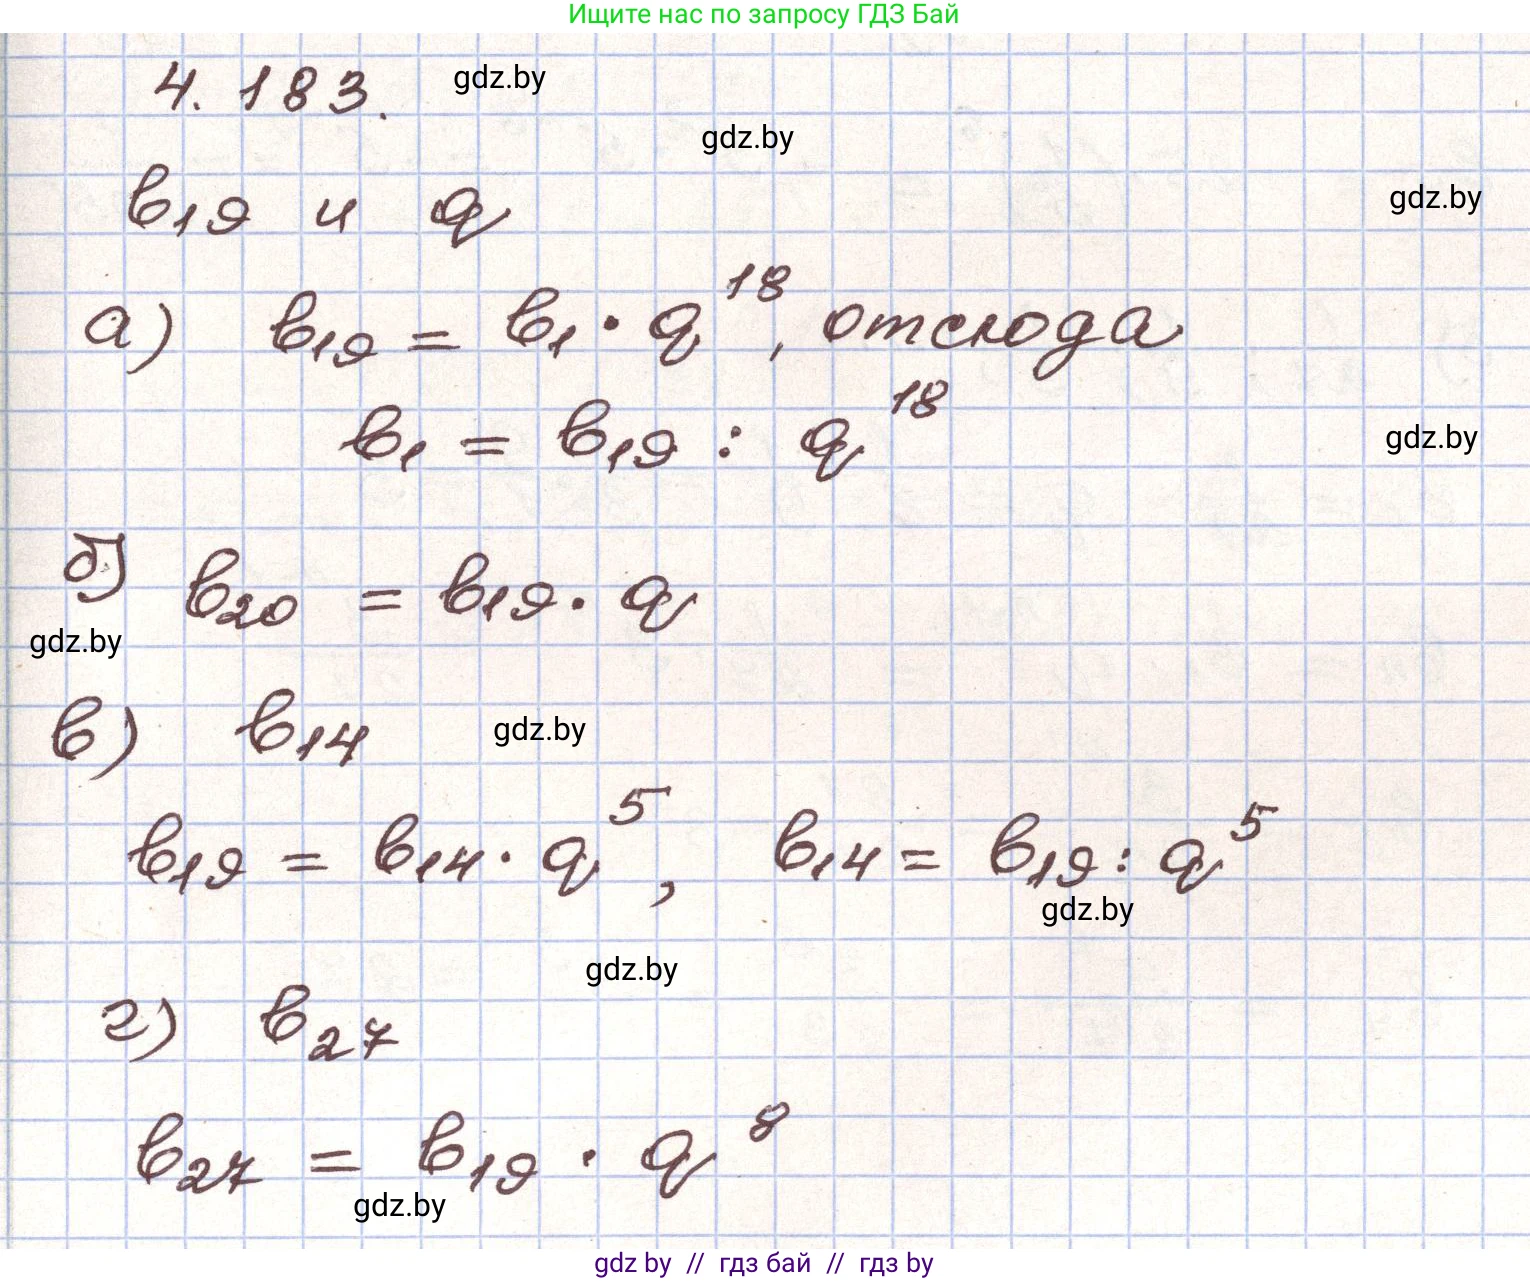 Ищите нас по запросу ГДЗ Бай
4.183. gdz.by
gdz.by
b₁₉ и q gdz.by
а) b₁₉ = b₁ · q¹⁸, отсюда
b₁ = b₁₉ : q¹⁸ gdz.by
б) b₂₀ = b₁₉ · q
gdz.by
в) b₁₄ gdz.by
b₁₉ = b₁₄ · q⁵, b₁₄ = b₁₉ : q⁵
gdz.by
gdz.by
г) b₂₇
b₂₇ = b₁₉ · q⁸
gdz.by
gdz by // гдз бай // гдз by